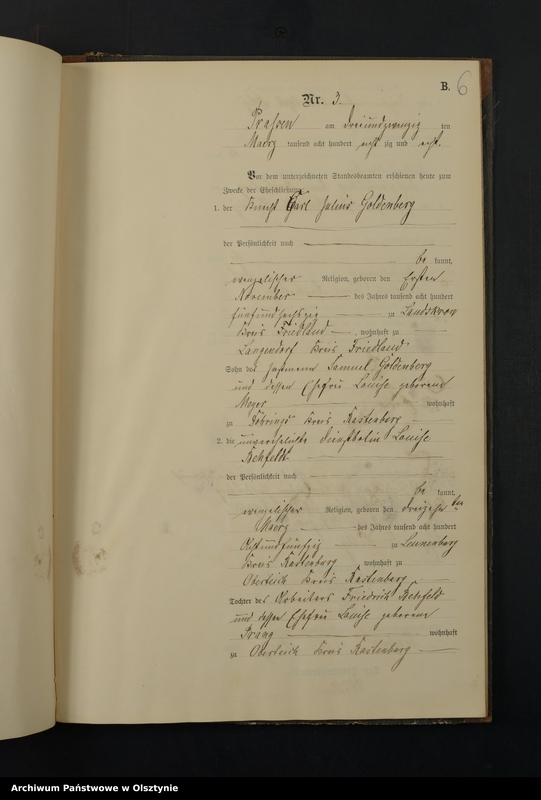 B.
6
Nr. 3.
Prassen am dreiundzwanzig ten
Maerz tausend acht hundert acht zig und acht.
Vor dem unterzeichneten Standesbeamten erschienen heute zum
Zwecke der Eheschließung:
1. der Knecht Carl Julius Goldenberg
der Persönlichkeit nach
be kannt,
evangelischer Religion, geboren den ersten
November des Jahres tausend acht hundert
fünfundsechszig zu Landskron
Kreis Friedland, wohnhaft zu
Langendorf Kreis Friedland
Sohn des Samuel Goldenberg
und dessen Ehefrau Louise geborene
Meyer wohnhaft
zu Kreis Rastenburg
2. die unverehelichte Louise
Rehfeldt
der Persönlichkeit nach
be kannt,
evangelischer Religion, geboren den dreizehnten
Maerz des Jahres tausend acht hundert
achtundfünfzig zu Leunenburg
Kreis Rastenburg wohnhaft zu
Oberteich Kreis Rastenburg
Tochter des Arbeiters Friedrich Rehfeld
und dessen Ehefrau Louise geborene
Prang wohnhaft
zu Oberteich Kreis Rastenburg
Archiwum Państwowe w Olsztynie